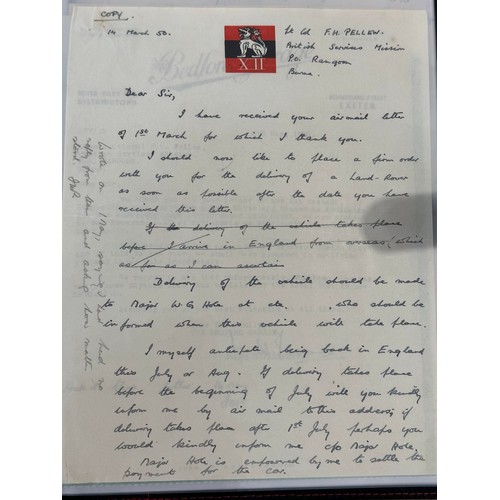 COPY.
14 March 50.
Lt Col F.H. PELLEW.
British Services Mission
P.O. Rangoon
Burma.
XII
Dear Sir,
I have received your airmail letter
of 1st March for which I thank you.
I should now like to place a firm order
with you for the delivery of a Land-Rover
as soon as possible after the date you have
received this letter.
If the delivery of the vehicle takes place
before I arrive in England from overseas, which
as far as I can ascertain
Delivery of the vehicle should be made
to Major W G Hole at etc. who should be
informed when this vehicle will take place.
I myself anticipate being back in England
this July or Aug. If delivery takes place
before the beginning of July will you kindly
inform me by air mail to this address; if
delivery takes place after 1st July perhaps you
would kindly inform me c/o Major Hole.
Major Hole is empowered by me to settle the
payment for the car.
Wrote on 1 May, saying I had had no
reply from them and asking how matters
stood.